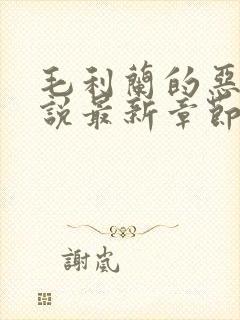 毛利蘭的惡
說最新章節
謝嵐